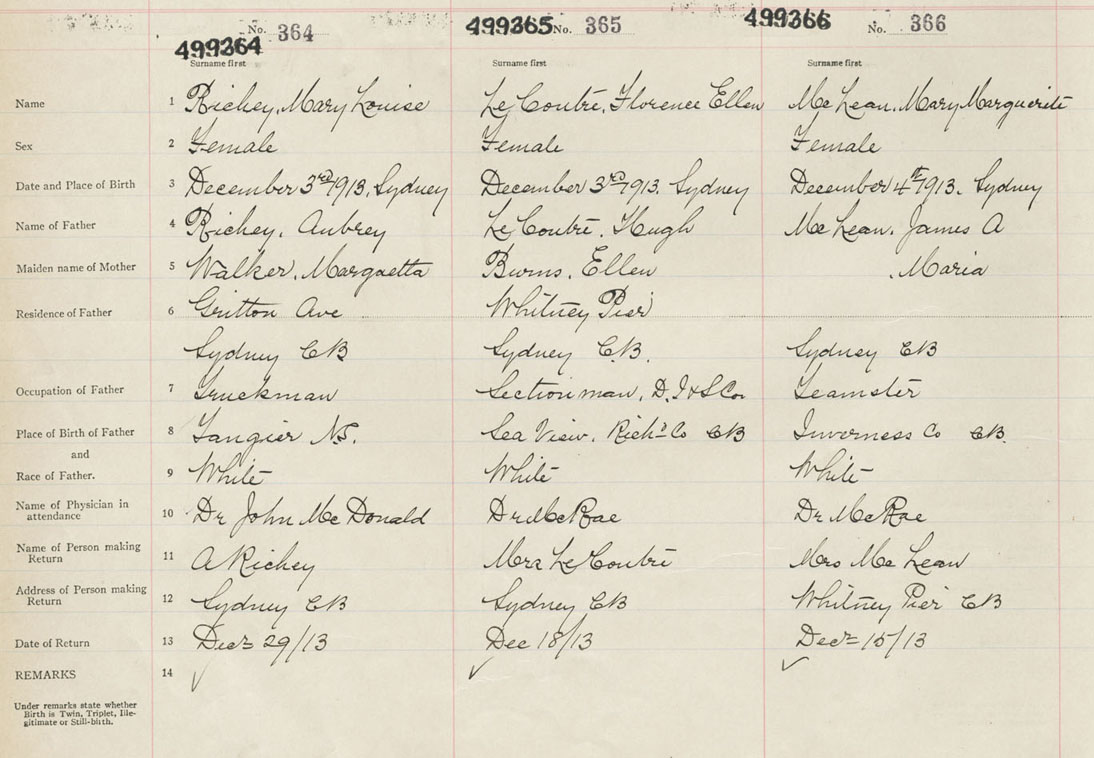 No. 364
499364
499365 No. 365
499366 No. 366
Surname first
Surname first
Surname first
Name 1 Richey, Mary Louise Le Coutre, Florence Ellen McLean, Mary Marguerite
Sex 2 Female Female Female
Date and Place of Birth 3 December 3rd 1913, Sydney December 3rd 1913, Sydney December 4th 1913, Sydney
Name of Father 4 Richey, Aubrey Le Coutre, Hugh McLean, James A
Maiden name of Mother 5 Walker, Margaetta Burns, Ellen , Maria
Residence of Father 6 Gritton Ave Whitney Pier
Sydney CB Sydney C.B. Sydney CB
Occupation of Father 7 Truckman Section man, D. I & S Co. Teamster
Place of Birth of Father 8 Tangier N.S. Sea View, Richd Co CB Inverness Co CB.
and
Race of Father. 9 White White White
Name of Physician in
attendance 10 Dr John McDonald Dr McRae Dr McRae
Name of Person making
Return 11 A Richey Mrs Le Coutre Mrs McLean
Address of Person making
Return 12 Sydney CB Sydney CB Whitney Pier CB
Date of Return 13 Decr 29/13 Dec 18/13 Decr 15/13
REMARKS 14 ✓ ✓ ✓
Under remarks state whether
Birth is Twin, Triplet, Ille-
gitimate or Still-birth.